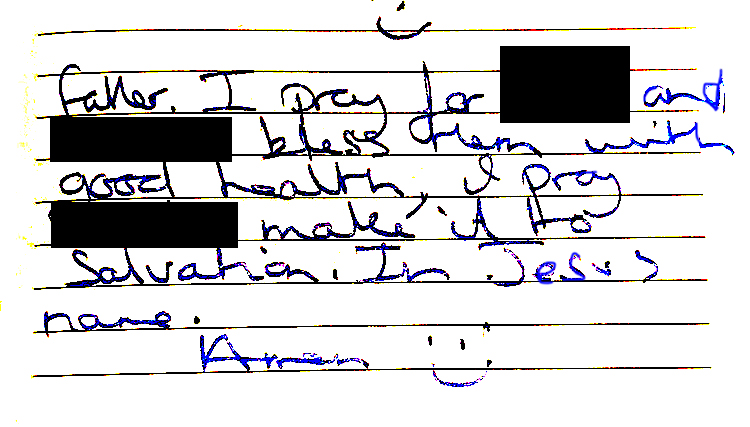 Father. I pray for and
bless them with
good health, I pray
make it to
Salvation. In Jesus
name.
Amen :)